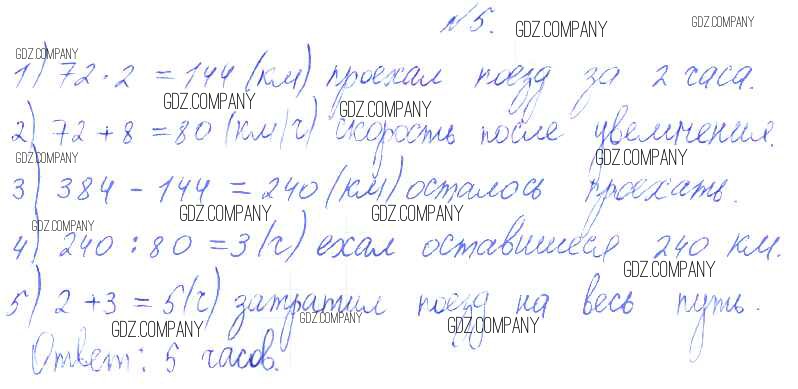 №5. GDZ.COMPANY GDZ.COMPANY
GDZ.COMPANY
1) 72·2 = 144 (км) проехал поезд за 2 часа.
GDZ.COMPANY GDZ.COMPANY
2) 72+8 = 80 (км/ч) скорость после увеличения.
GDZ.COMPANY GDZ.COMPANY
3) 384 - 144 = 240 (км) осталось проехать.
GDZ.COMPANY GDZ.COMPANY GDZ.COMPANY
4) 240 : 80 = 3 (ч) ехал оставшиеся 240 км.
GDZ.COMPANY
5) 2 + 3 = 5 (ч) затратил поезд на весь путь.
GDZ.COMPANY GDZ.COMPANY GDZ.COMPANY
Ответ: 5 часов.